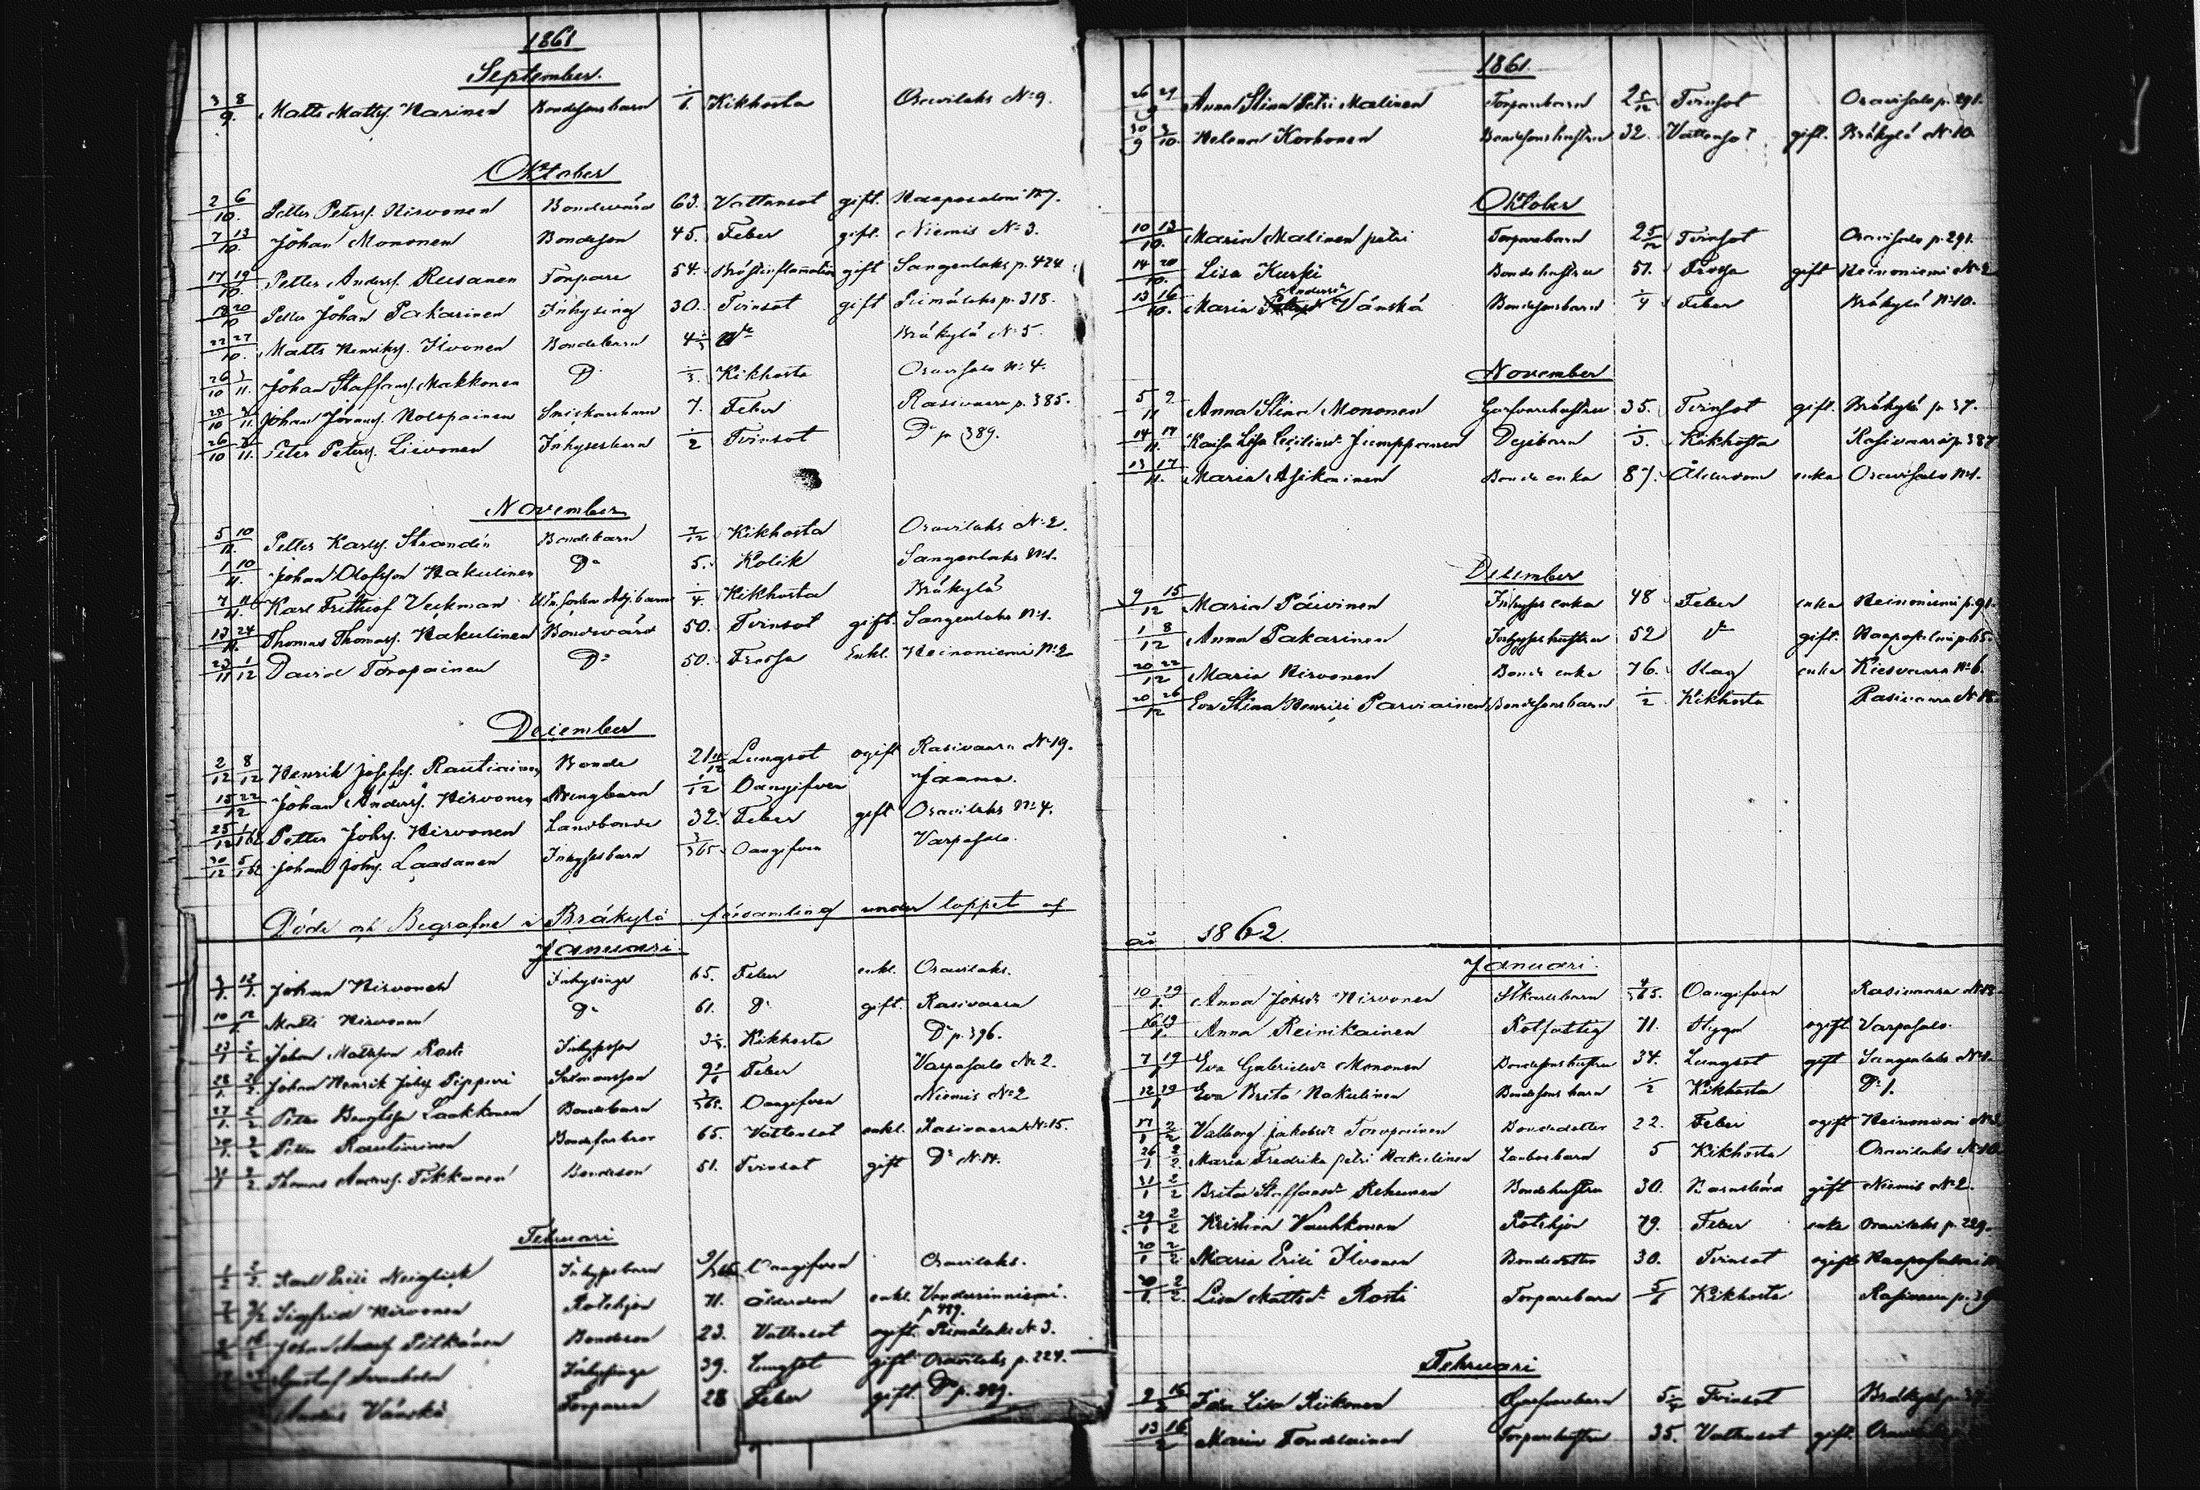 1861
September.
3 8/9 Matts Matts. Narinen Bondesonsbarn 1/6. Kikhosta Oravilaks No 9.
Oktober
2 6/10. Petter Peters. Hirvonen Bondevärd 63. Vattensot gift. Haapasalmi No 7.
7 13/10. Johan Mononen Bondeson 45. Feber gift. Niemis No 3.
17 19/10. Petter Anders. Reesanen Torpare 54. Bröstinflamation gift Sangenlaks p. 424
18 20/10 Petter Johan Pakarinen Inhysing 30. Tvinsot gift Piimälaks p. 318.
22 27/10. Matts Henriks. Ilvonen Bondebarn Do Bräkylä No 5.
26/10 3/11. Johan Staffans. Makkonen Do 1/3. Kikhosta Oravisalo No 4.
Johan Jörans. Holopainen Snickarebarn 7. Feber Rasivaara p. 385.
26/10 3/11. Peter Peters. Liivonen Inhysesbarn 1/2 Tvinsot Do p. 389.
November
5 10/11. Petter Karls. Strandén Bondebarn 7/12 Kikhosta Oravilaks No 2.
1 10/11. Johan Olofsson Hakulinen Do 5. Kolik Sangenlaks No 1.
Karl Frithiof Veckman 1/4. Kikhosta Bräkylä
13 24/11. Thomas Thomas. Hakulinen Bondevärd 50. Tvinsot gift. Sangenlaks No 1.
23/11 1/12 David Toropainen Do 50. Frossa Enkl. Heinoniemi No 2
December
2/12 8/12 Henrik Josefs. Rautiainen Bonde 21 11/12 Lungsot ogift Rasivaara No 19.
15 22/12 Johan Anders. Hirvonen Drengbarn 1/12 Oangifven Jaama.
25/12 1/1 62 Petter Johs. Hirvonen Landbonde 32. Feber gift Oravilaks No 4.
30/12 5/1 62 Johan Johs. Laasanen Inhysesbarn 3/365 Oangifven Varpasalo.
Döde och Begrafne i Bräkylä församling under loppet af
Januari.
Johan Hirvonen Inhysinge 65. Feber enkl. Oravilaks.
10 12/1. Matts Hirvonen Do 61. Do gift. Rasivaara
23/1 2/2 Johan Matsson Rosti Inhysesson Kikhosta Do p. 396.
28/1. 2/2. Johan Henrik Johs. Pippuri Feber Varpasalo No 2.
27/1. 2/2 Peter Bengtsson Laakkonen Bondebarn Oangifven Niemis No 2
30/1 2/2 Petter Rautiainen Bondefarbror 65. Vattensot enkl. Rasivaara No 15.
31/1 2/2. Thomas Anders. Tikkanen Bondeson 51. Tvinsot gift Do No 14.
Februari
1/2 2/2. Karl Eriki Neiglick Inhysesbarn Oangifven Oravilaks.
Sigfrid Hirvonen Rotehjon 71. ålderdom enkl. Vanduriinniemi. p. 489.
Johan Pitkänen Bondeson 23. Vattensot ogift. Piimälaks No 3.
Gustaf Inhysinge 39. Lungsot gift Oravilaks p. 224.
Anders Vänskä Torparen 28 Feber gift. Do p. 229.
1861.
26 29/9 Anna Stina Petri Malinen Torparebarn 2 5/12 Tvinsot Oravisalo p. 291.
30/9 3/10. Helena Korhonen Bondesonshustru 32. Vattensot gift. Bräkylä No 10.
Oktober
10 13/10. Maria Malinen petri Torparebarn 2 5/12 Tvinsot Oravisalo p. 291.
14 20/10. Lisa Kurki Bondehustru 51. Frossa gift Heinoniemi No 2
13 16/10. Maria Andersdr Vänskä Bondesonsbarn 1/4 Feber Bräkylä No 10.
November
5 9/11 Anna Stina Mononen Garfvarehustru 35. Tvinsot gift. Bräkylä p. 37.
14 17/11. Kaisa Lisa Ceciliasdr Jumppanen Dejebarn 1/3. Kikhosta Rasivaara p. 387
13 17/11. Maria Asikainen Bonde enka 87. Ålderdom enka Oravisalo No 1.
December
9 15/12 Maria Päivinen Inhyses enka 48 Feber enka Heinoniemi p. 91.
1 8/12 Anna Pakarinen Inhyseshustru 52 Do gift. Haapasalmi p. 65.
20 22/12 Maria Hirvonen Bonde enka 76. Slag enka Kiesvaara No 6.
20 26/12 Eva Stina Henriki Parviainen Bondesonsbarn 1/2 Kikhosta Rasivaara No 18.
år 1862.
Januari.
10 19/1. Anna Johsdr Hirvonen 4/365. Oangifven Rasivaara No 13.
16 19/1. Anna Reinikainen Rotfattig 71. Stygn ogift Varpasalo.
7 19/1 Eva Gabrielsdr Mononen Bondesonshustru 34. Lungsot gift Sangenlaks No 1.
12 19/1 Eva Brita Hakulinen Bondesonsbarn 1/2 Kikhosta Do 1.
17/1 2/2 Valborg Jakobsdr Toropainen Bondedotter 22. Feber ogift Heinoniemi No 2.
26/1 2/2. Maria Fredrika petri Hakulinen Landbobarn 5 Kikhosta Oravilaks No 10
31/1 2/2 Brita Staffansdr Rehunen Bondehustru 30. Barnsbörd gift Niemis No 2.
29/1 2/2 Kristina Vauhkonen Rotehjon 79. Feber enka Oravilaks p. 229.
30/1 2/2. Maria Eriki Ilvonen Bondedotter 30. Tvinsot ogift Haapasalmi
30/1 2/2. Lisa Mattsdr Rosti Torparebarn 5/6 Kikhosta Rasivaara p.
Februari
Lisa Riikonen Garfvarebarn Tvinsot Bräkylä
13 16/2 Maria Tondelainen Torparehustru 35. Vattensot gift